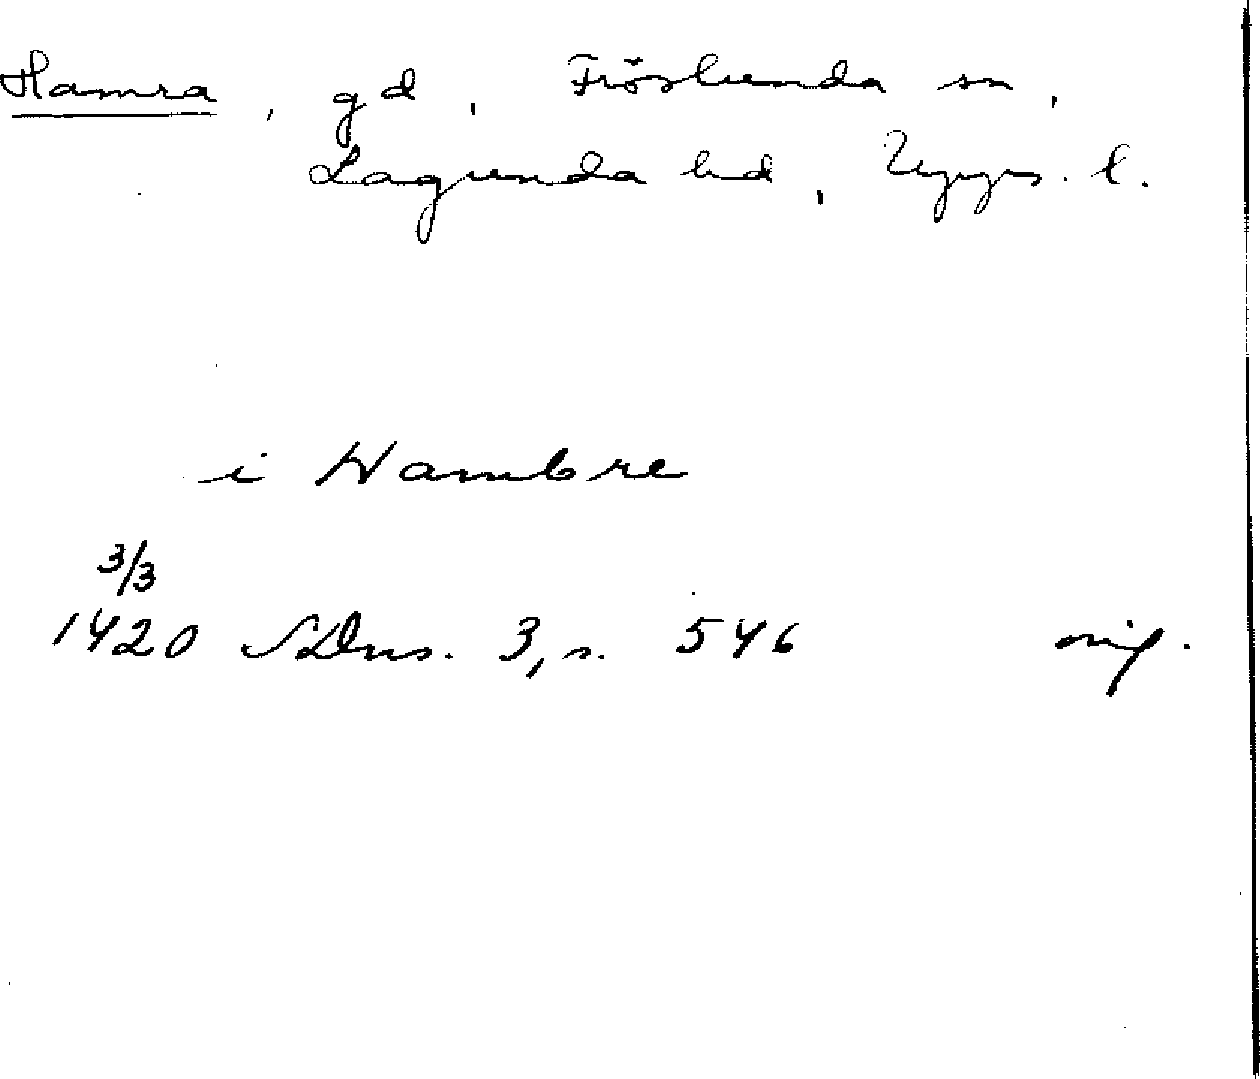 Hamra, gd, Fröslunda sn,
Lagunda hd, Upps. l.
i Hambre
3/3
1420 SDns. 3, s. 546 orig.